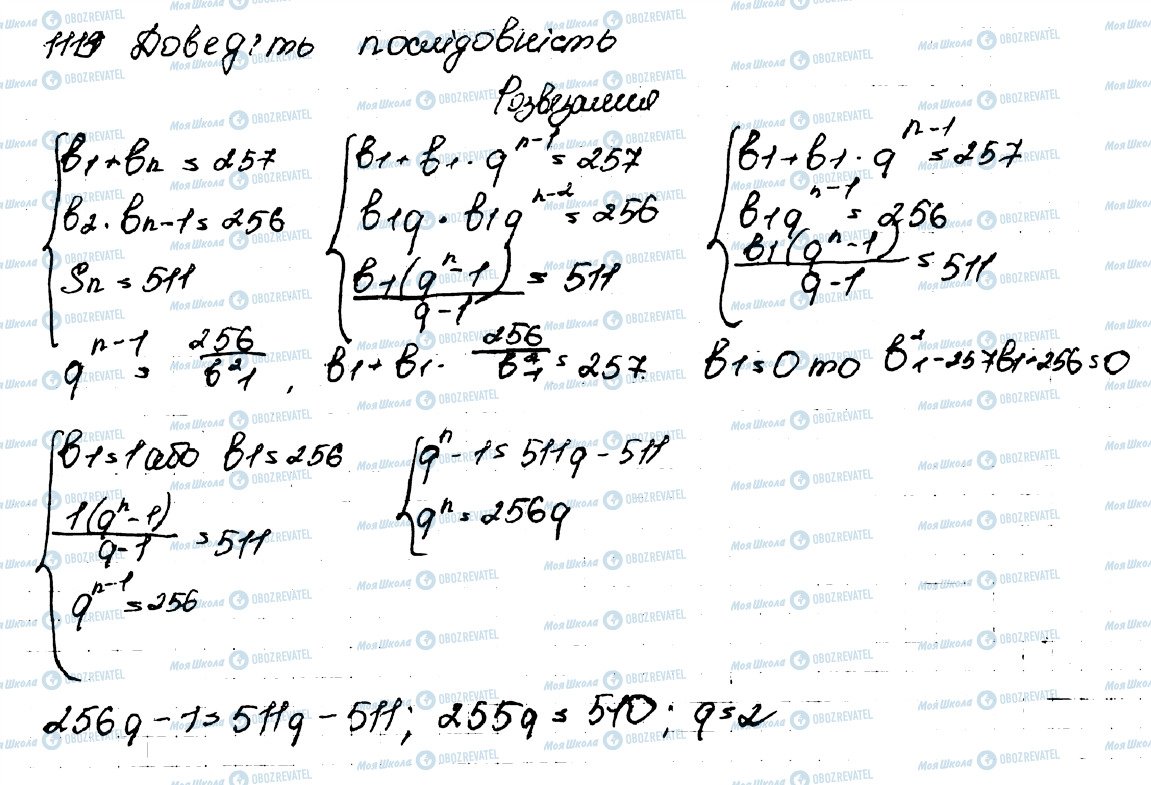 1119 Доведіть послідовність
Розвязання
b1+bn = 257
b2·bn-1 = 256
Sn = 511
b1+b1·q^n-1 = 257
b1q·b1q^n-2 = 256
b1(q^n-1)/q-1 = 511
b1+b1·q^n-1 = 257
b1q^n-1 = 256
b1(q^n-1)/q-1 = 511
q^n-1 = 256/b²1, b1+b1·256/b²1 = 257 b1=0 то b²1-257b1+256=0
b1=1 або b1=256
1(q^n-1)/q-1 = 511
q^n-1 = 256
q^n-1 = 511q-511
q^n = 256q
256q-1=511q-511; 255q=510; q=2
Моя Школа OBOZREVATEL